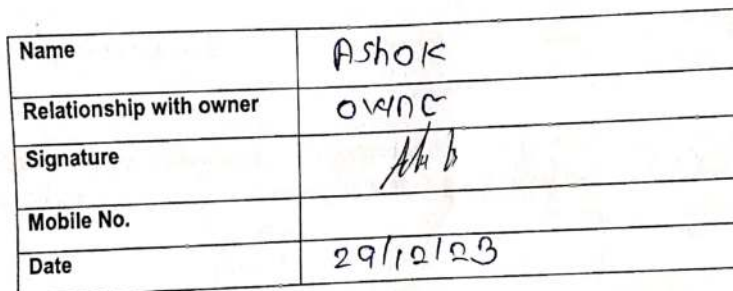 Name Ashok
Relationship with owner owne
Signature
Mobile No.
Date 29/12/23